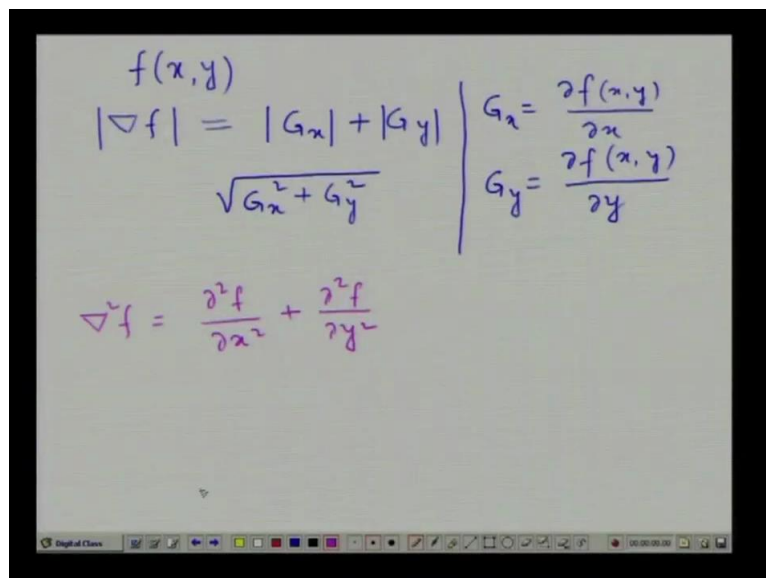 f(x,y)
|∇f| = |Gx| + |Gy|
√(Gx² + Gy²)
Gx = ∂f(x,y)/∂x
Gy = ∂f(x,y)/∂y
∇²f = ∂²f/∂x² + ∂²f/∂y²
Digital Class
00:00:00.00